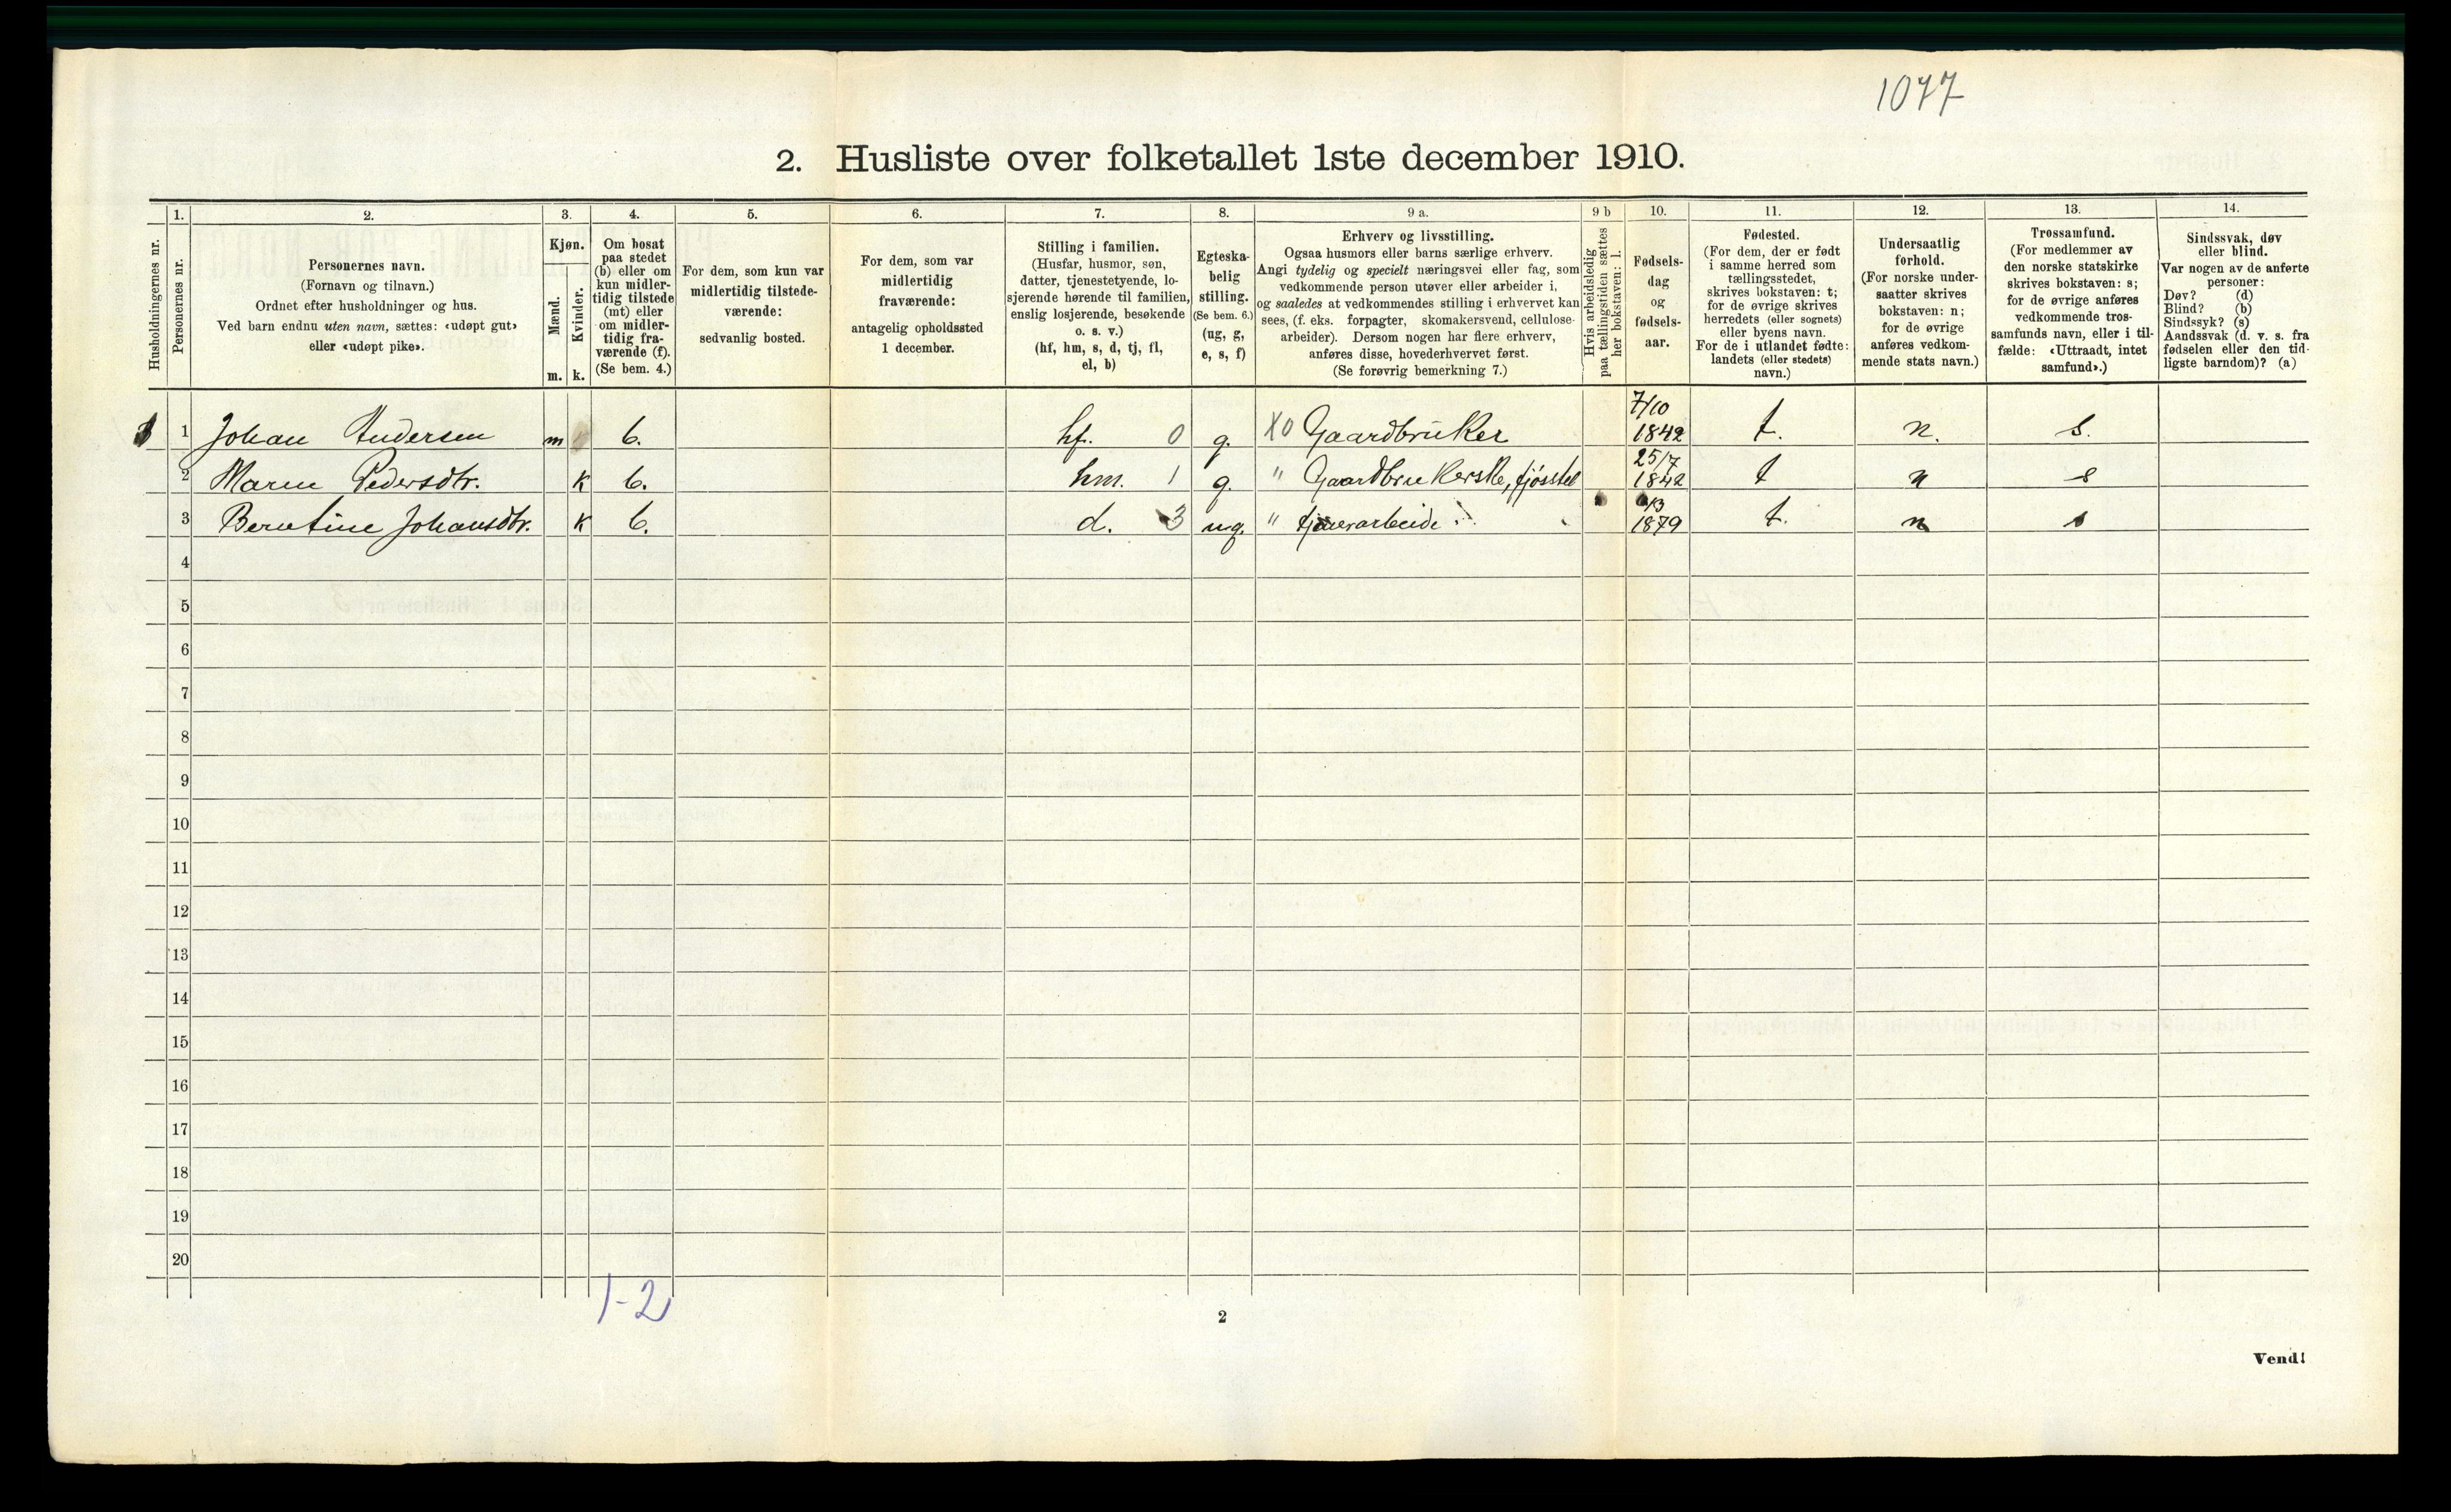 1077
2. Husliste over folketallet 1ste december 1910.
Husholdningernes nr.
1.
Personernes nr.
2.
Personernes navn.
(Fornavn og tilnavn.)
Ordnet efter husholdninger og hus.
Ved barn endnu uten navn, sættes: «udøpt gut»
eller «udøpt pike».
3.
Kjøn.
Mænd.
m.
Kvinder.
k.
4.
Om bosat
paa stedet
(b) eller om
kun midler-
tidig tilstede
(mt) eller
om midler-
tidig fra-
værende (f).
(Se bem. 4.)
5.
For dem, som kun var
midlertidig tilstede-
værende:
sedvanlig bosted.
6.
For dem, som var
midlertidig
fraværende:
antagelig opholdssted
1 december.
7.
Stilling i familien.
(Husfar, husmor, søn,
datter, tjenestetyende, lo-
sjerende hørende til familien,
enslig losjerende, besøkende
o. s. v.)
(hf, hm, s, d, tj, fl,
el, b)
8.
Egteska-
belig
stilling.
(Se bem. 6.)
(ug, g,
e, s, f)
9 a.
Erhverv og livsstilling.
Ogsaa husmors eller barns særlige erhverv.
Angi tydelig og specielt næringsvei eller fag, som
vedkommende person utøver eller arbeider i,
og saaledes at vedkommendes stilling i erhvervet kan
sees, (f. eks. forpagter, skomakersvend, cellulose-
arbeider). Dersom nogen har flere erhverv,
anføres disse, hovederhvervet først.
(Se forøvrig bemerkning 7.)
9 b
Hvis arbeidsledig
paa tællingstiden sættes
her bokstaven: l.
10.
Fødsels-
dag
og
fødsels-
aar.
11.
Fødested.
(For dem, der er født
i samme herred som
tællingsstedet,
skrives bokstaven: t;
for de øvrige skrives
herredets (eller sognets)
eller byens navn.
For de i utlandet fødte:
landets (eller stedets)
navn.)
12.
Undersaatlig
forhold.
(For norske under-
saatter skrives
bokstaven: n;
for de øvrige
anføres vedkom-
mende stats navn.)
13.
Trossamfund.
(For medlemmer av
den norske statskirke
skrives bokstaven: s;
for de øvrige anføres
vedkommende tros-
samfunds navn, eller i til-
fælde: «Uttraadt, intet
samfund».)
14.
Sindssvak, døv
eller blind.
Var nogen av de anførte
personer:
Døv? (d)
Blind? (b)
Sindssyk? (s)
Aandssvak (d. v. s. fra
fødselen eller den tid-
ligste barndom)? (a)
1 Johan Andersen m b. hf. 0 g. X0 Gaardbruker 7/10 1842 t. n. s.
2 Maren Pedersdtr. k b. hm. 1 g. " Gaardbrukerske, fjøsstel 25/7 1842 t n s
3 Berntine Johansdtr. k b. d. 3 ug. " 1879 t. n s
4
5
6
7
8
9
10
11
12
13
14
15
16
17
18
19
20
1-2
2
Vend!